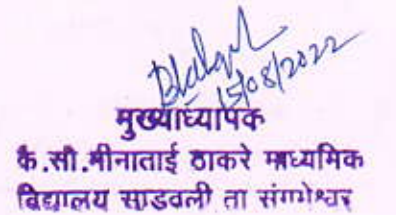 15/08/2022
मुख्याध्यापक
कै.सौ.मीनाताई ठाकरे माध्यमिक
विद्यालय साडवली ता संगमेश्वर